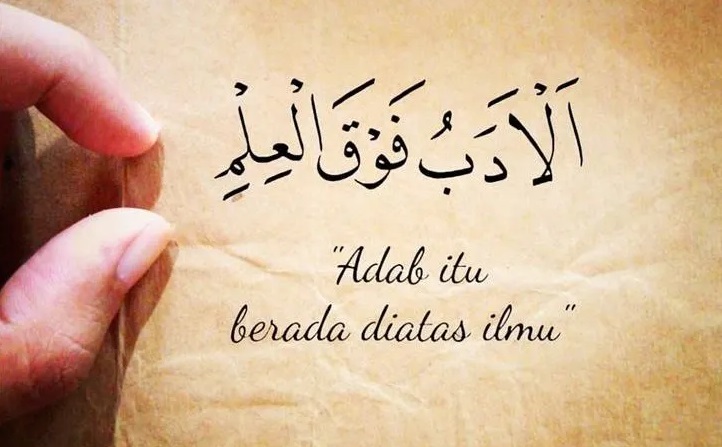 اَلْاَدَبُ فَوْقَ الْعِلْمِ
"Adab itu
berada diatas ilmu"